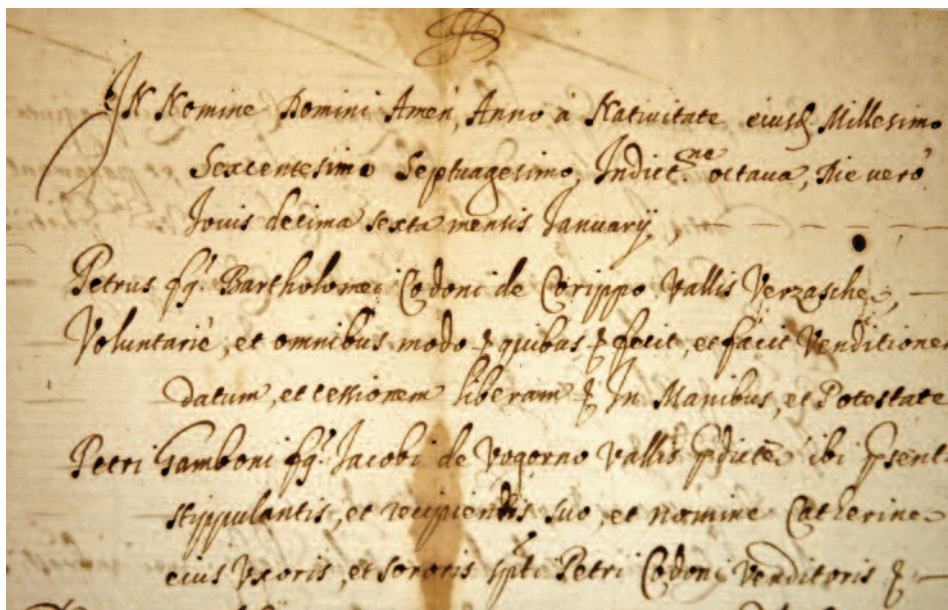 IN Nomine Domini Amen, Anno à Nativitate eiusd Millesimo
Sexcentesimo Septuagesimo, Indict.ne octava, Die verò
Jovis decima sexta mensis Januarij,
Petrus fq. Bartholomei Codoni de Corippo Vallis Verzasche,
Voluntariè, et omnibus modo & quibus & fecit, et facit Venditionem
datum, et cessionem liberam & In Manibus, et Potestate
Petri Gamboni fq. Jacobi de Vogorno Vallis pdicte ibi psent
stippulantis, et recipientis suo, et nomine Catherine
eius Uxoris, et sororis spti Petri Codoni Venditoris &